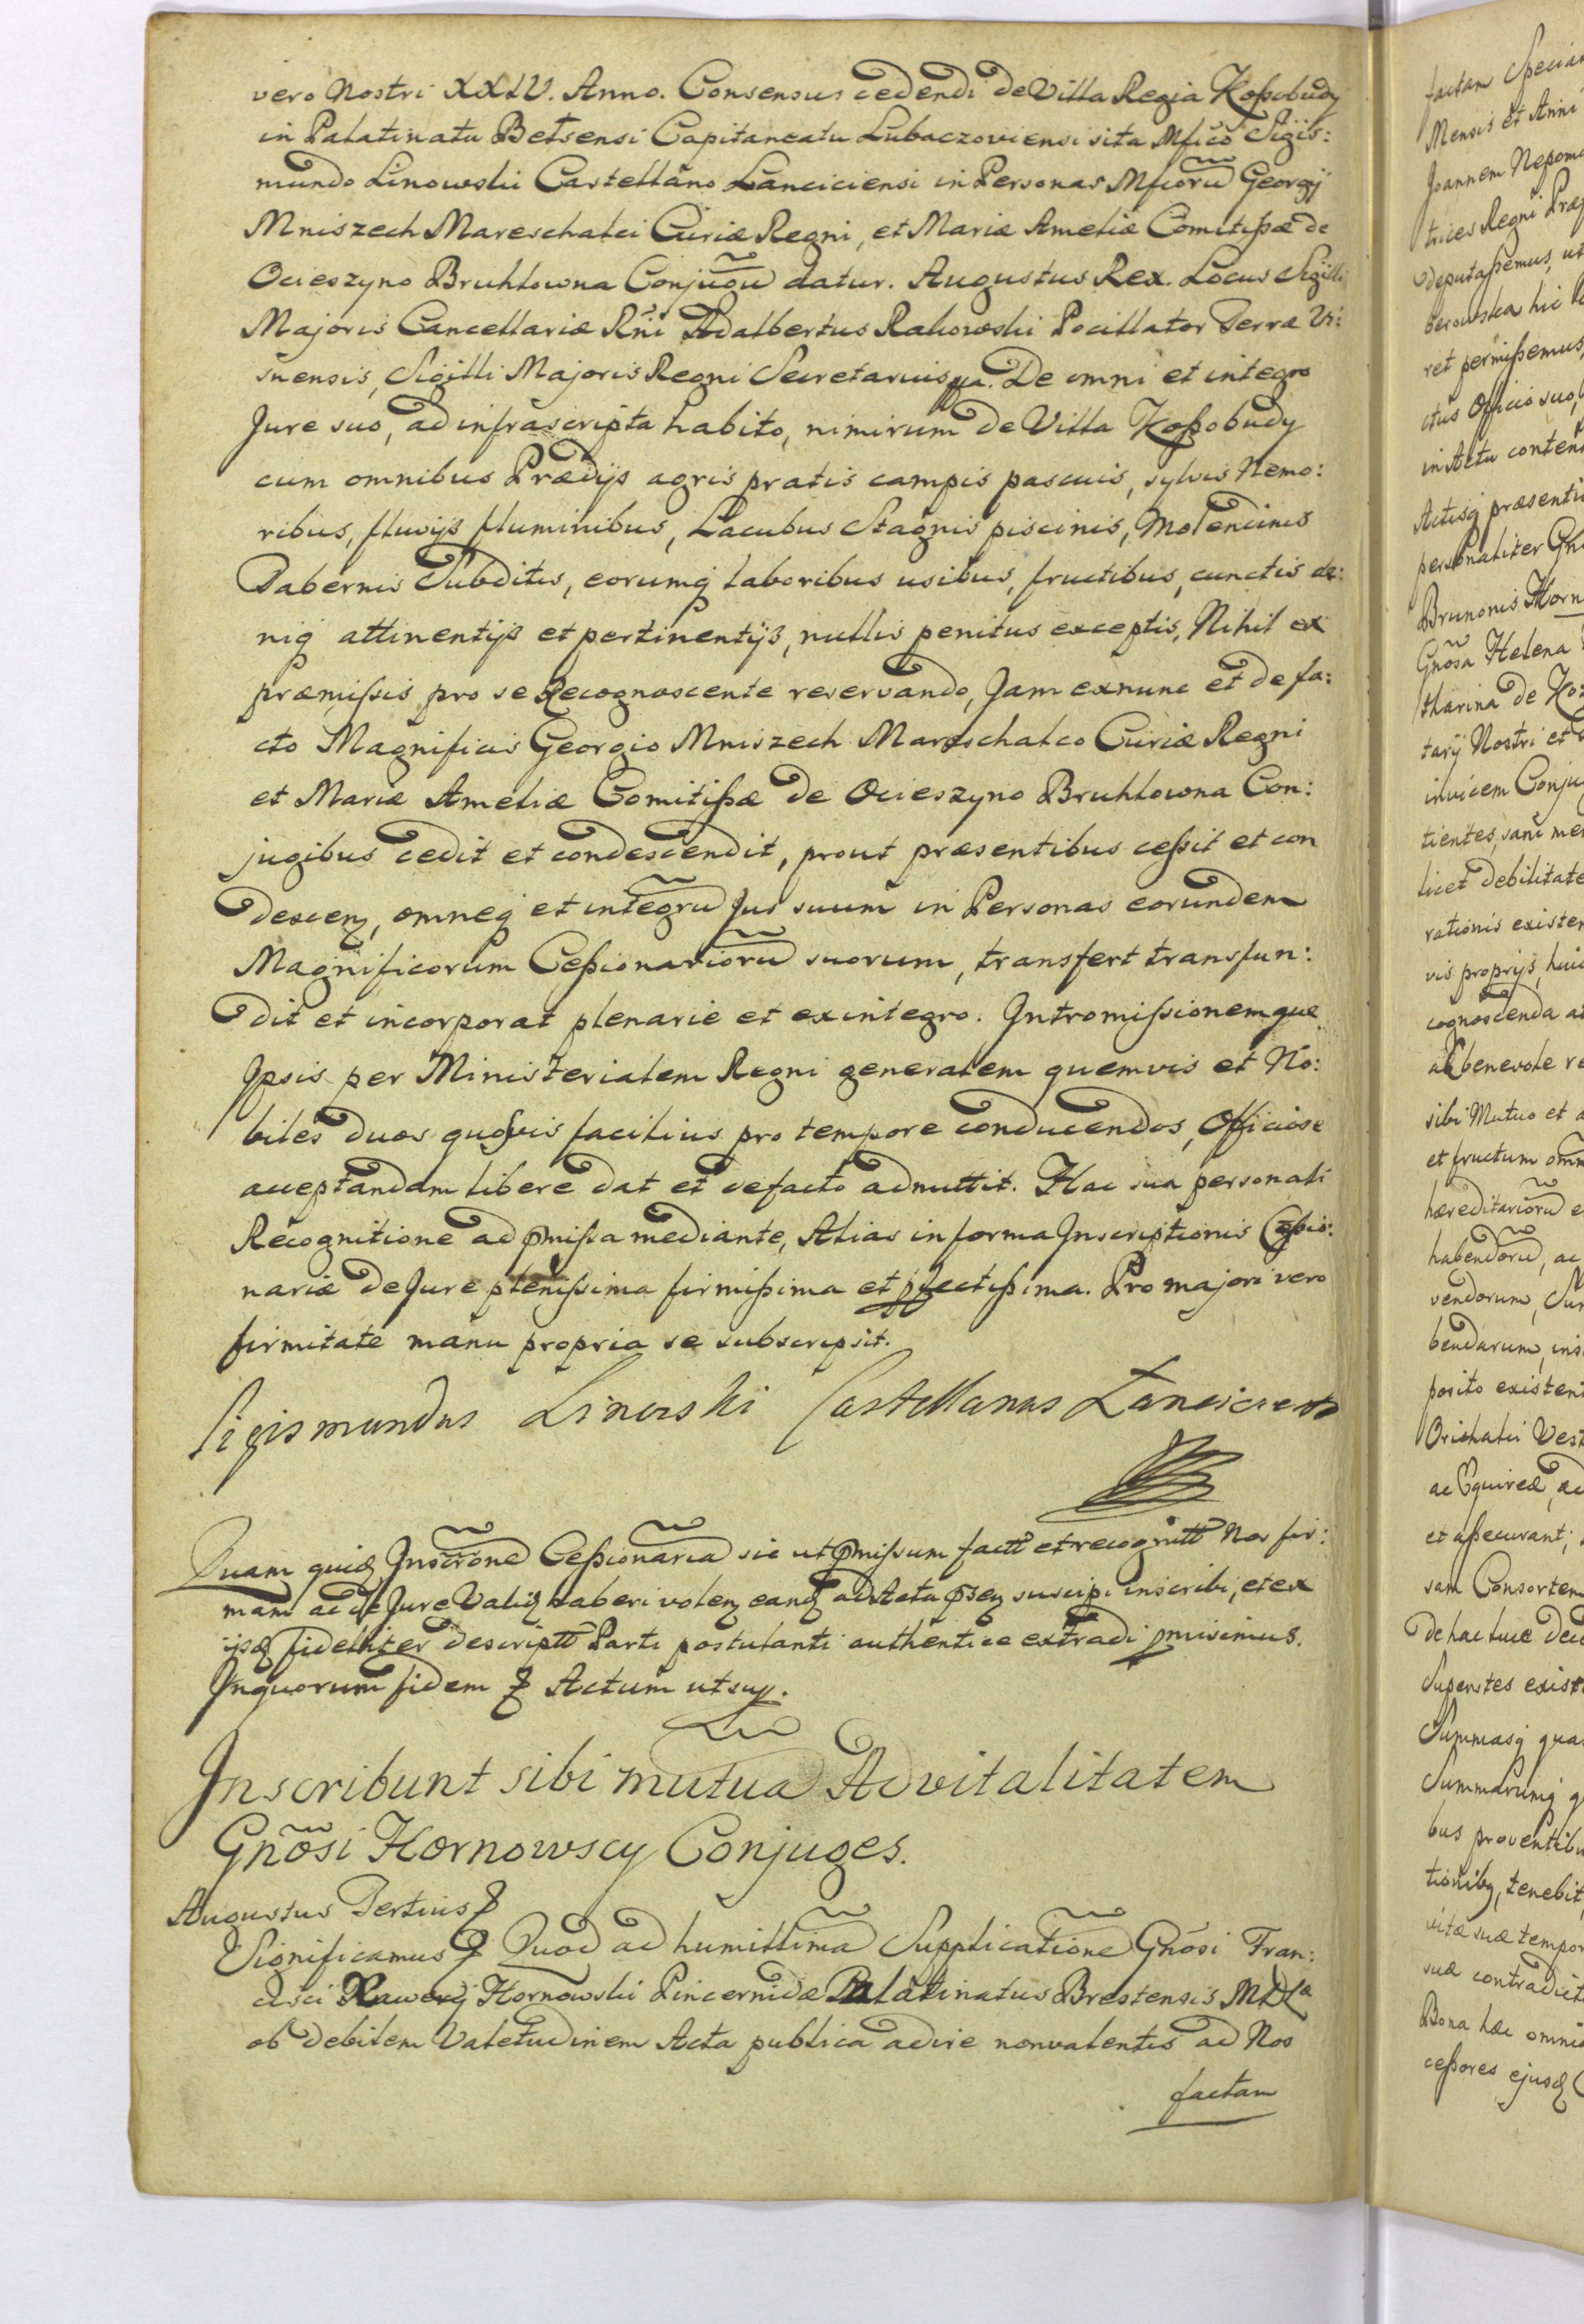 vero Nostri XXIV. Anno. Consensus cedendi de Villa Regia Koßobudy
in Palatinatu Belsensi Capitaneatu Lubaczoviensi sita Mfico Sigis:
mundo Linowski Castellano Lanciciensi in Personas Mficorũ Georgij
Mniszech Mareschalci Curiæ Regni, et Mariæ Ameliæ Comitißæ de
Ocieszyno Bruhlowna Conjugũ datur. Augustus Rex. Locus Sigilli
Majoris Cancellariæ Rñi Adalbertus Rakowski Pocillator Terræ Vi:
snensis, Sigilli Majoris Regni Secretarius mpa. De omni et integro
Jure suo, ad infrascripta habito, nimirum de Villa Koßobudy
cum omnibus Prædijs agris pratis campis pascuis, sylvis Nemo:
ribus, fluvijs fluminibus, Lacubus Stagnis piscinis, Molendinis
Tabernis Subditis, eorumq laboribus usibus, fructibus, cunctis de:
niq attinentijs et pertinentijs, nullis penitus exceptis, Nihil ex
præmißis pro se Recognoscente reservando, Jam exnunc et de fa:
cto Magnificis Georgio Mniszech Mareschalco Curiæ Regni
et Mariæ Ameliæ Comitißæ de Ocieszyno Bruhlowna Con:
jugibus cedit et condescendit, prout præsentibus ceßit et con
descen, omneq et integrũ Jus suum in Personas eorundem
Magnificorum Ceßionariorũ suorum, transfert transfun:
dit et incorporat plenarie et exintegro. Intromißionemque
Ipsis per Ministerialem Regni generalem quemvis et No:
biles duos quosvis facilius pro tempore conducendos, Officiose
acceptandam libere dat et defacto admittit. Hac sua personali
Recognitione ad pmißa mediante, Alias in forma Inscriptionis Ceßio:
nariæ de Jure plenißima firmißima et pfectißima. Pro majori vero
firmitate manu propria se subscripsit.
Sigismundus Linowski Castellanus Lancicien
Quam quid Inscrõne Ceßionaria sic ut pmißum factt et recognitt Nos fir:
mam ac de Jure Valid haberi volen eand ad Acta psen suscipi inscribi, et ex
ijsd fideliter descriptt Parti postulanti authentice extradi pmisimus.
In quorum fidem & Actum ut sup.
Inscribunt sibi mutua Advitalitatem
Gñosi Hornowscy Conjuges.
Augustus Tertius &
Significamus & Quod ad humillima Supplicatione Gñosi Fran:
cisci Xawerij Hornowski Pincernidæ Palatinatus Brestensis MDLæ
ob debilem Valetudinem Acta publica adire nonvalentis ad Nos
factam
factam
Mensis et Anni
Joannem Nepom
trices Regni Præ
deputaßemus, ut
berowska hic
ret permißemus,
ctus Officio suo,
in Actu conten
Actisq præsenti
personaliter
Brunonis Horn
Gñosa Helena
tharina de
tarij Nostri et
invicem Conju
tientes, sani me
licet debilitate
rationis existen
vis proprijs, huic
cognoscenda
ac benevole re
sibi Mutuo et
et fructum omn
hæreditariorũ e
habendorũ, ac
vendorum, Sum
bendarum, ins
posito existent
Orichalci Vest
ac Equireæ, ac
et aßecurant;
sam Consortem
de hac luce dec
Superstes exist
Summasq qua
Summarumq q
bus proventibu
tionibq, tenebit,
vitæ suæ tempor
suæ contradict
Bona hæc omnia
ceßores ejusd